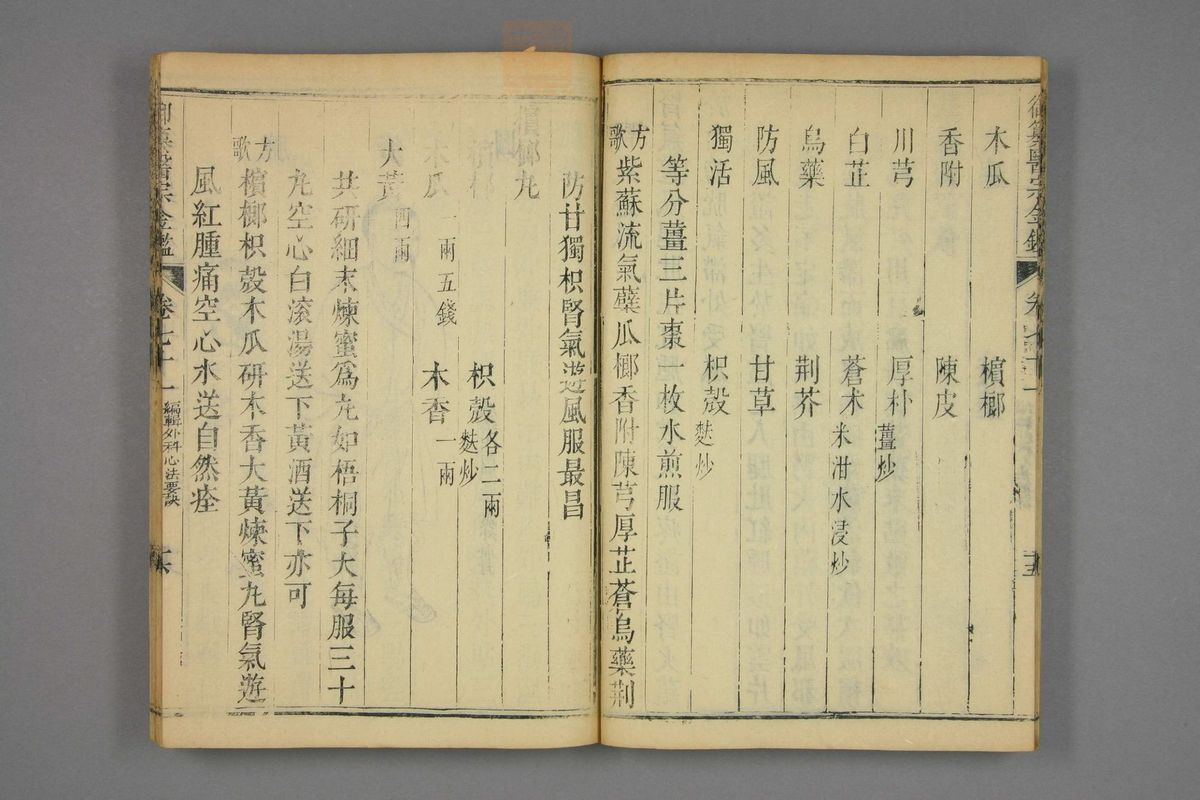 御纂醫宗金鑑 卷七十一 十五
木瓜 檳榔
香附 陳皮
川芎 厚朴薑炒
白芷 蒼木米泔水浸炒
烏藥 荆芥
防風 甘草
獨活 枳殼麩炒
等分薑三片棗一枚水煎服
方歌 紫蘇流氣蘗瓜榔香附陳芎厚芷蒼烏藥荆
防甘獨枳腎氣遊風服最昌
檳榔丸
檳榔 枳殼各二兩麩炒
木瓜一兩五錢 木香一兩
大黃四兩
共研細末煉蜜爲丸如梧桐子大每服三十
丸空心白滾湯送下黃酒送下亦可
方歌 檳榔枳殼木瓜研木香大黃煉蜜丸腎氣遊
風紅腫痛空心水送自然痊
御纂醫宗金鑑 卷七十一 編輯外科心法要訣 十六